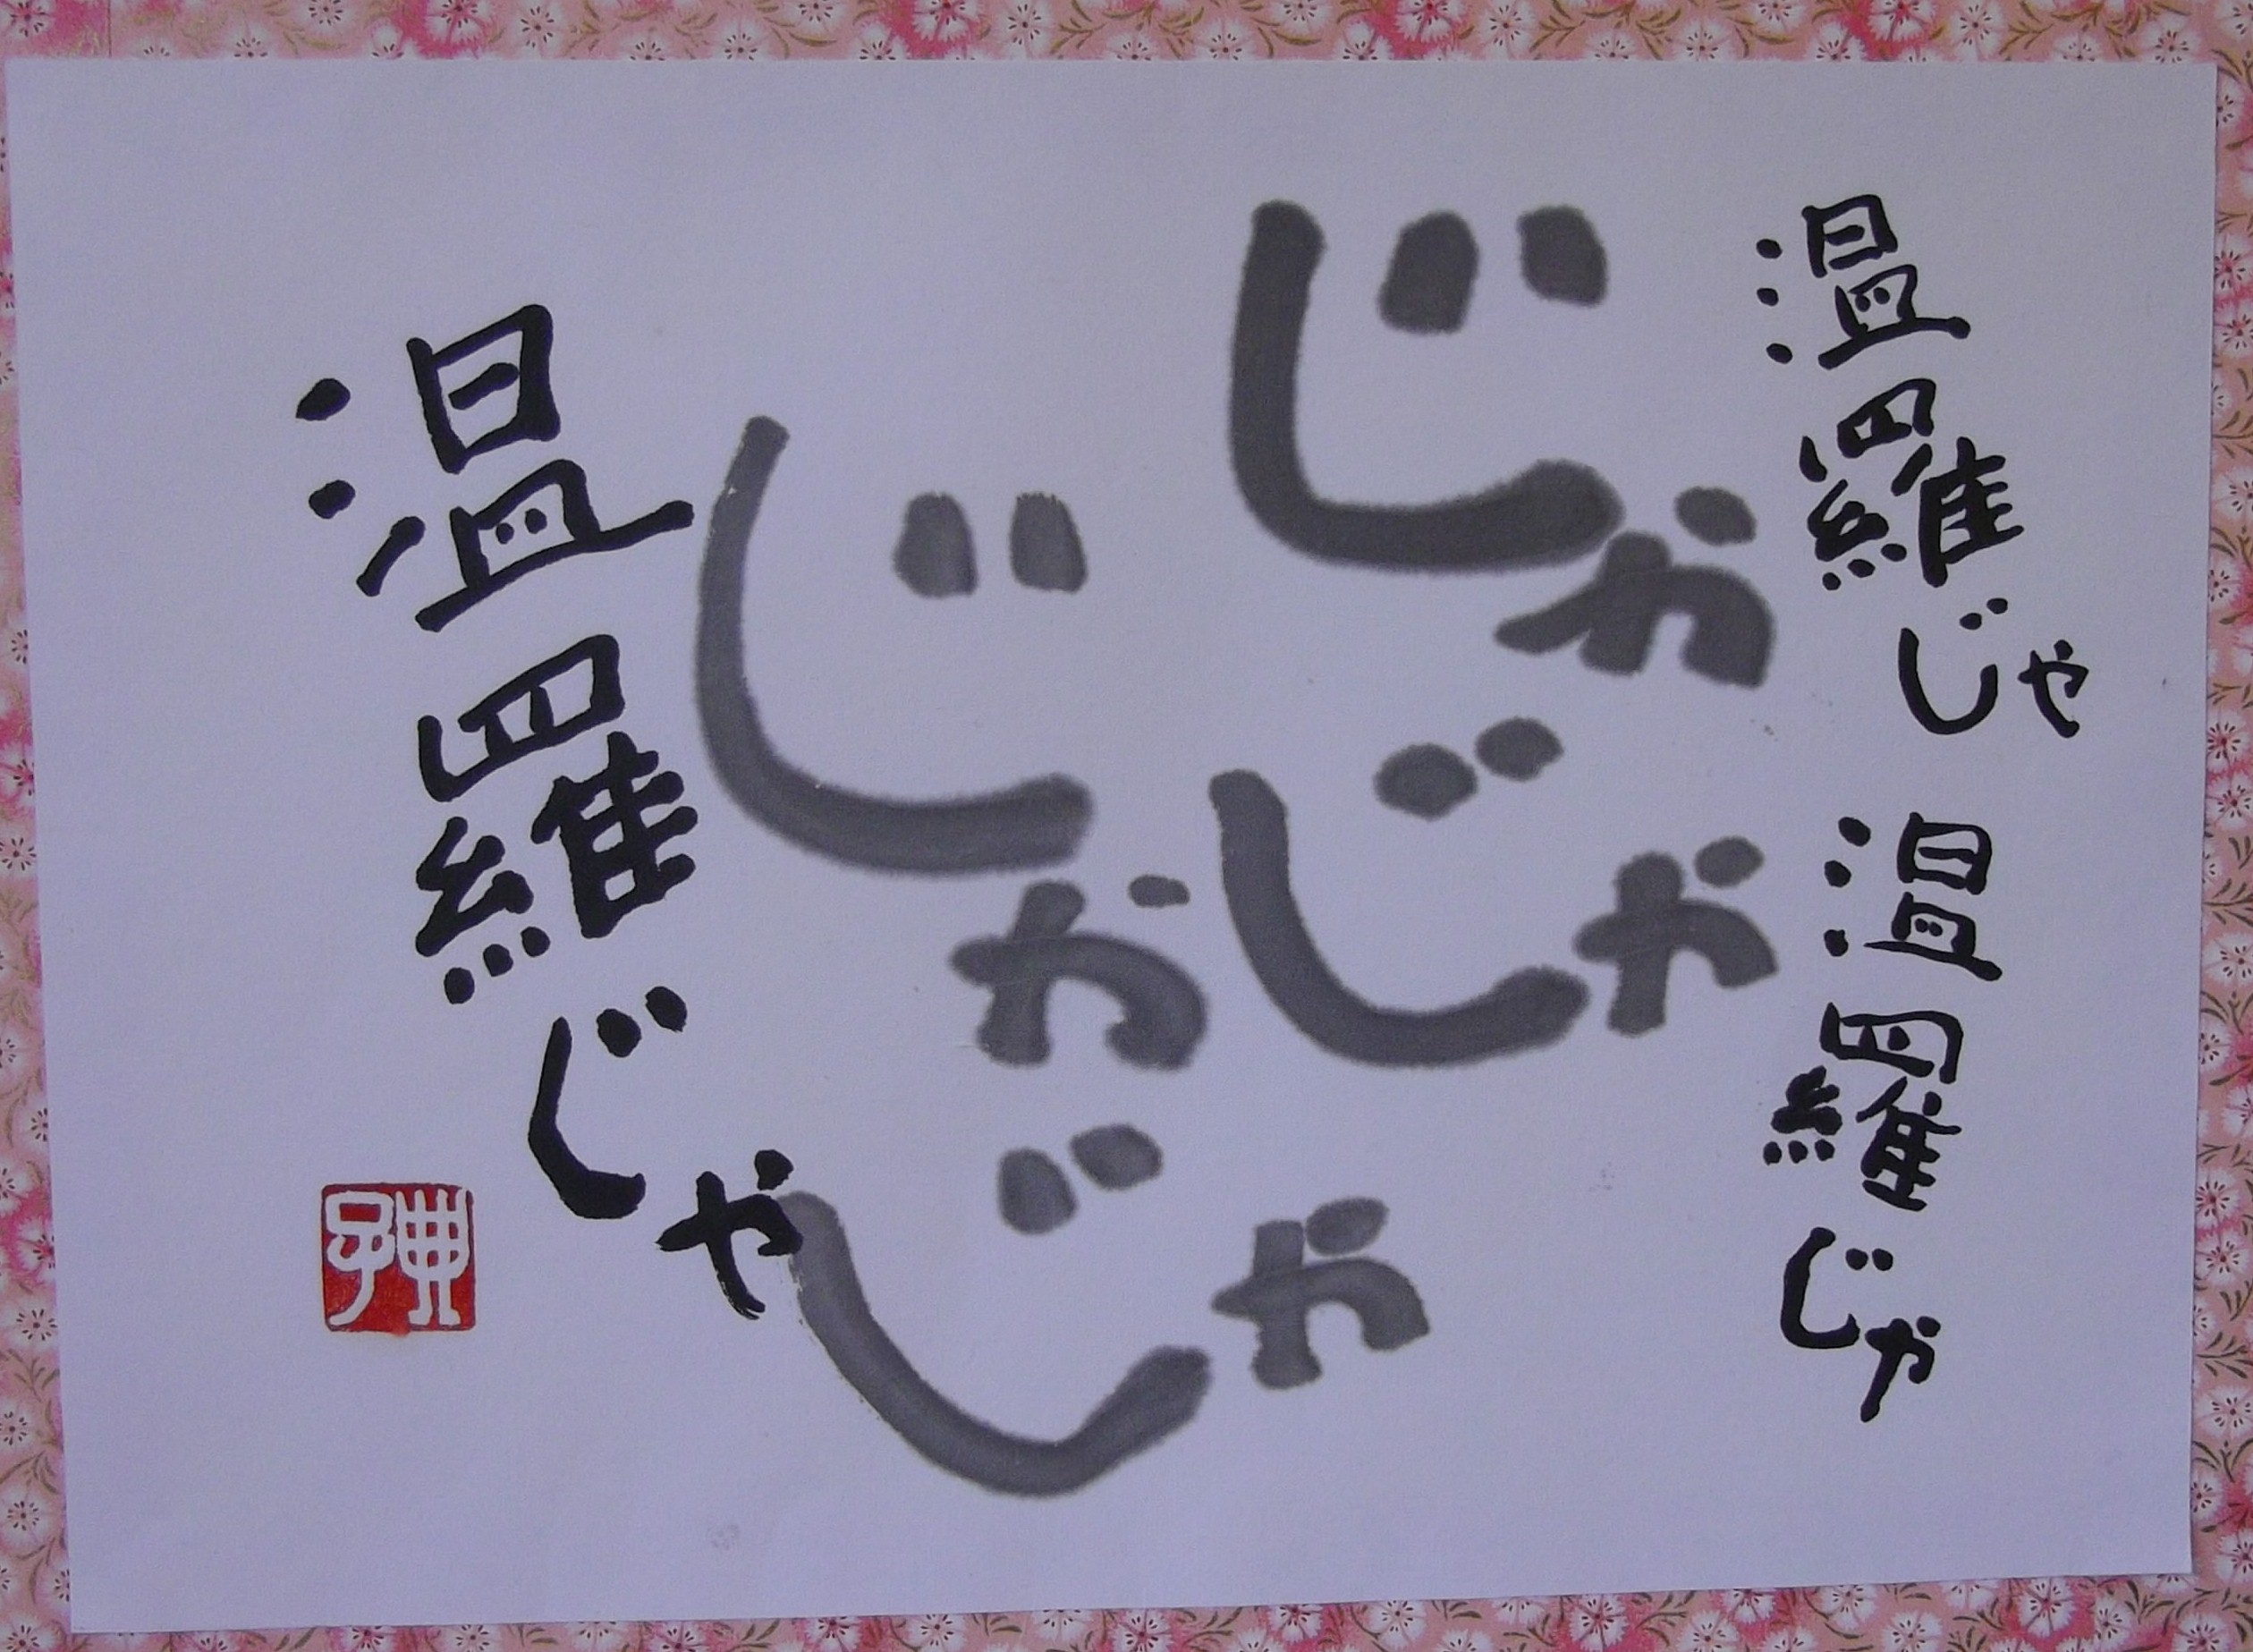 温羅じゃ
温羅じゃ
じゃ
じゃ
じゃ
じゃ
温羅じゃ